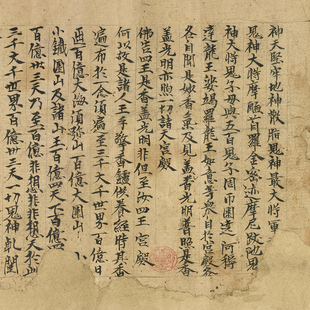 神天堅牢地神散脂鬼神最大將軍
鬼神大將摩醯首羅金剛密迹摩尼跋陁鬼
神大將鬼子母與五百鬼子周帀圍遶阿耨
達龍王娑竭羅龍王如意等眾自於宮殿各
各自聞是妙香氣及見蓋香光明普照是香
蓋光明亦照一切諸天宮殿
佛告四王是香蓋光明非但至汝四王宮殿
何以故是諸人王手擎香爐供養經時其香
遍布於一念頃遍至三千大千世界百億日
百億大海須弥山百億大圍山小
小鐵圍山及諸山王百億四天下百億四
百億卅三天乃至百億非想非非想天於此
三千大千世界百億卅三天一切鬼神乾闥